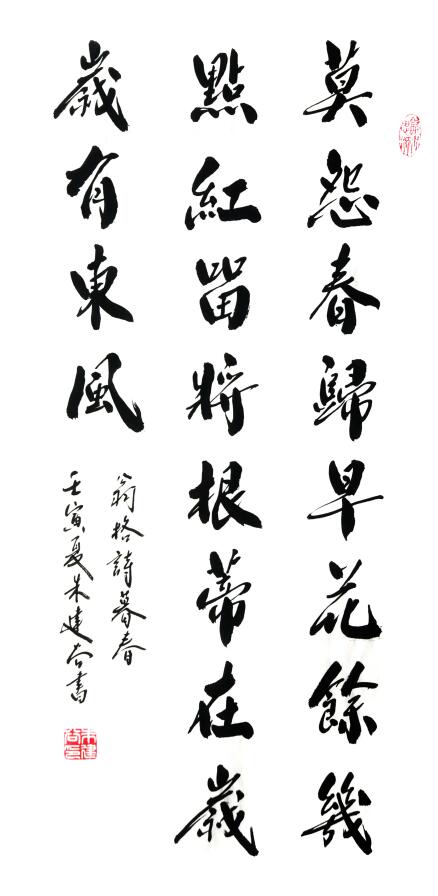 莫怨春歸早花餘幾
點紅留將根蒂在歲
歲有東風
翁格詩暮春
壬寅夏朱建谷書